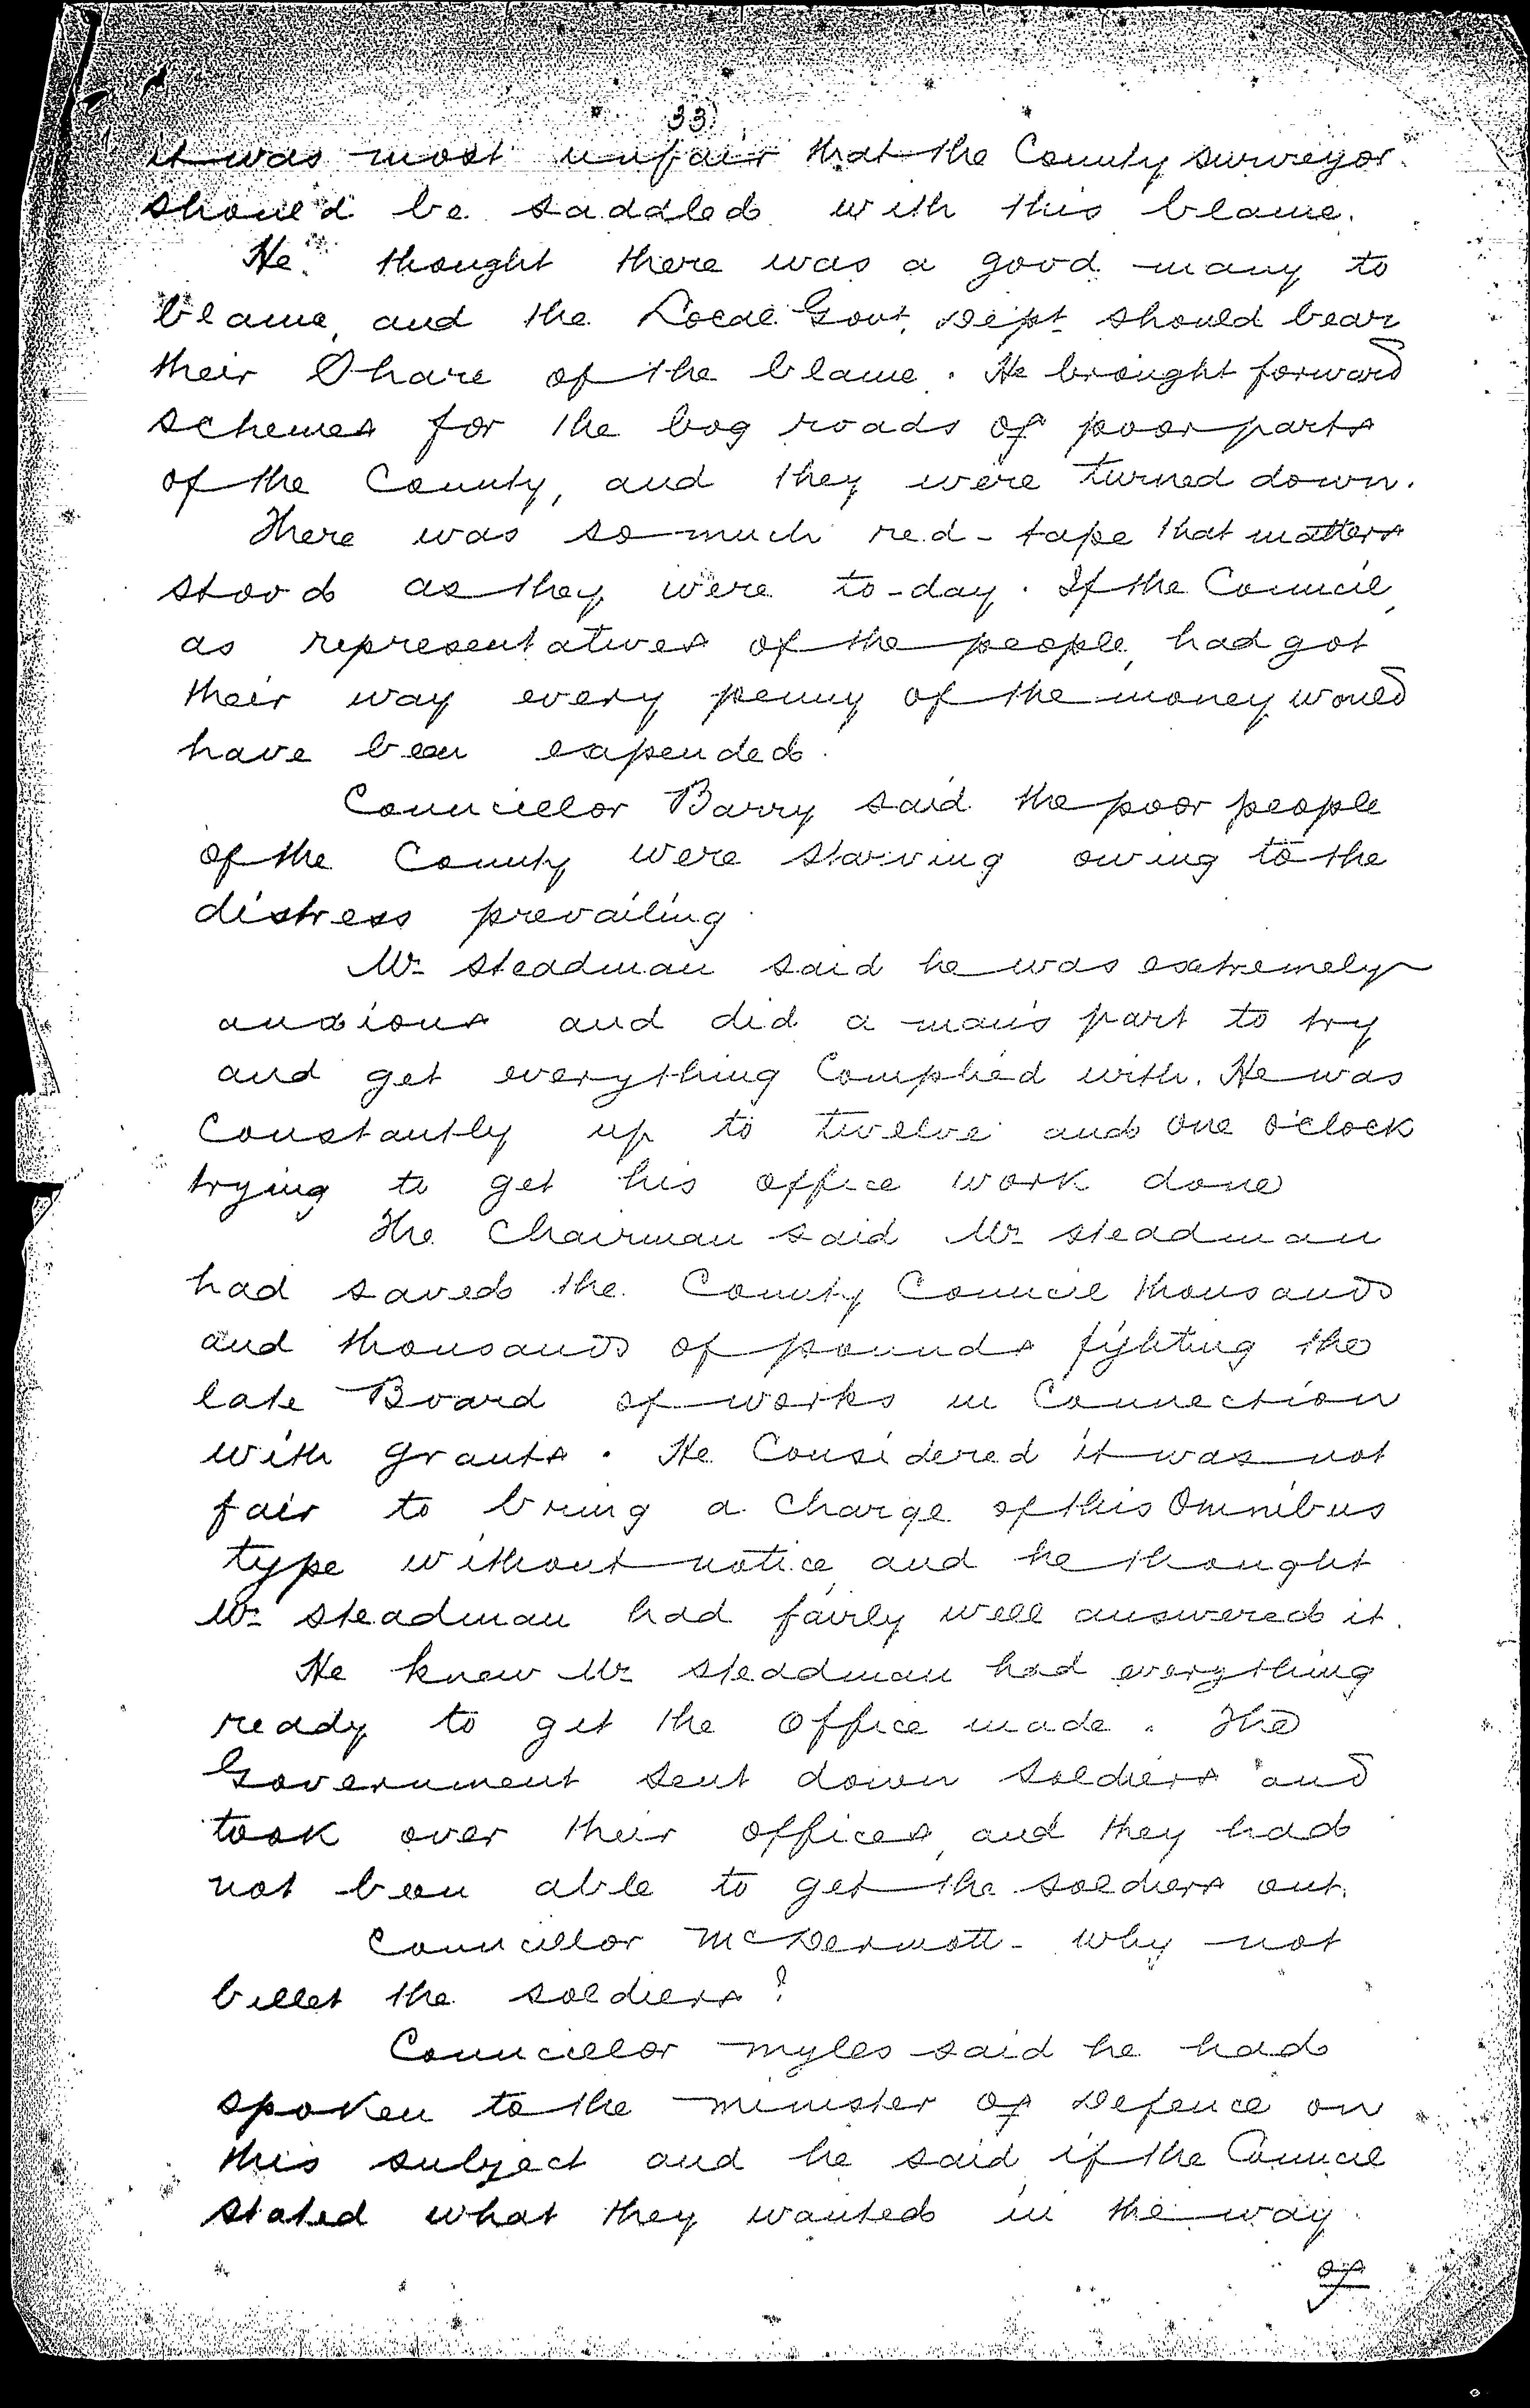 33)
it was most unfair that the County surveyor
should be saddled with this blame.
He thought there was a good many to
blame, and the Local Govt. Dept should bear
their Share of the blame. He brought forward
schemes for the bog roads of poor parts
of the County, and they were turned down.
There was so much red-tape that matters
stood as they were to-day. If the Council,
as representatives of the people, had got
their way every penny of the money would
have been expended.
Councillor Barry said the poor people
of the County were starving owing to the
distress prevailing.
Mr Steadman said he was extremely
anxious and did a man's part to try
and get everything Complied with. He was
Constantly up to twelve and one o'clock
trying to get his office work done
The Chairman said Mr Steadman
had saved the County Council thousands
and thousands of pounds fighting the
late Board of works in Connection
with grants. He Considered it was not
fair to bring a charge of this Omnibus
type without notice, and he thought
Mr Steadman had fairly well answered it.
He knew Mr Steadman had everything
ready to get the Office made. The
Government sent down soldiers and
took over their offices, and they had
not been able to get the soldiers out.
Councillor McDermott - Why not
billet the soldiers?
Councillor Myles said he had
spoken to the Minister of Defence on
this subject and he said if the Council
stated what they wanted in the way
of